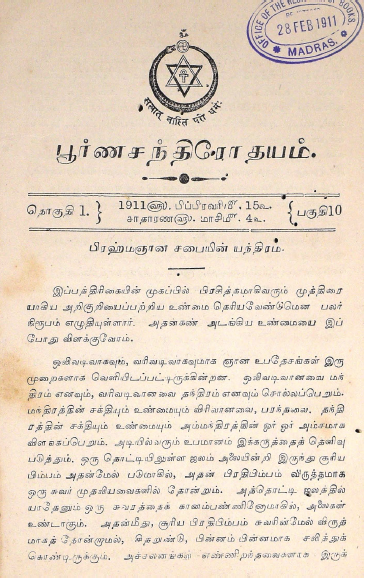 OFFICE OF THE REGISTRAR OF BOOKS
28 FEB 1911
* MADRAS. *
ஸத்யாத் நாஸ்தி பரோ தர்ம:
பூர்ணசந்திரோதயம்.
தொகுதி 1. } 1911௵. பிப்பிரவரி௴. 15௳. { பகுதி 10
சாதாரண௵. மாசி௴. 4௳.
பிரஹ்மஞான சபையின் யந்திரம்.
இப்பத்திரிகையின் முகப்பில் பிரசித்தமாகிவரும் முத்திரை
யாகிய அறிகுறியைப்பற்றிய உண்மை தெரியவேண்டுமென பலர்
நிரூபம் எழுதியுள்ளார். அதன்கண் அடங்கிய உண்மையை இப்
போது விளக்குவோம்.
ஒலிவடிவாகவும், வரிவடிவாகவுமாக ஞான உபதேசங்கள் இரு
முறைகளாக வெளியிடப்பட்டிருக்கின்றன. ஒலிவடிவானவை மந்
திரம் எனவும், வரிவடிவானவை தந்திரம் எனவும் சொல்லப்பெறும்.
மந்திரத்தின் சக்தியும் உண்மையும் விரிவானவை, பரந்தவை, தந்தி
ரத்தின் சக்தியும் உண்மையும் அம்மந்திரத்தின் ஓர் ஓர் அம்சமாக
விளங்கப்பெறும். அடியில்வரும் உபமானம் இக்கருத்தைத் தெளிவு
படுத்தும். ஒரு தொட்டியிலுள்ள ஜலம் அலையின்றி இருந்து சூரிய
பிம்பம் அதன்மேல் படுமாகில், அதன் பிரதிபிம்பம் விருத்தமாக
ஒரு சுவர் முதலியவைகளில் தோன்றும். அத்தொட்டி ஜலத்தில்
யாதேனும் ஒரு சுவரத்தைக் கானம்பண்ணினோமாகில், அலைகள்
உண்டாகும். அதன்மீது, சூரிய பிரதிபிம்பம் சுவரின்மேல் விருத்
மாகத் தோன்றாமல், சிதறுண்டு, பின்னம்பின்னமாக சலித்துக்
கொண்டிருக்கும். எண்ணிறந்தவைகளாக இருக்